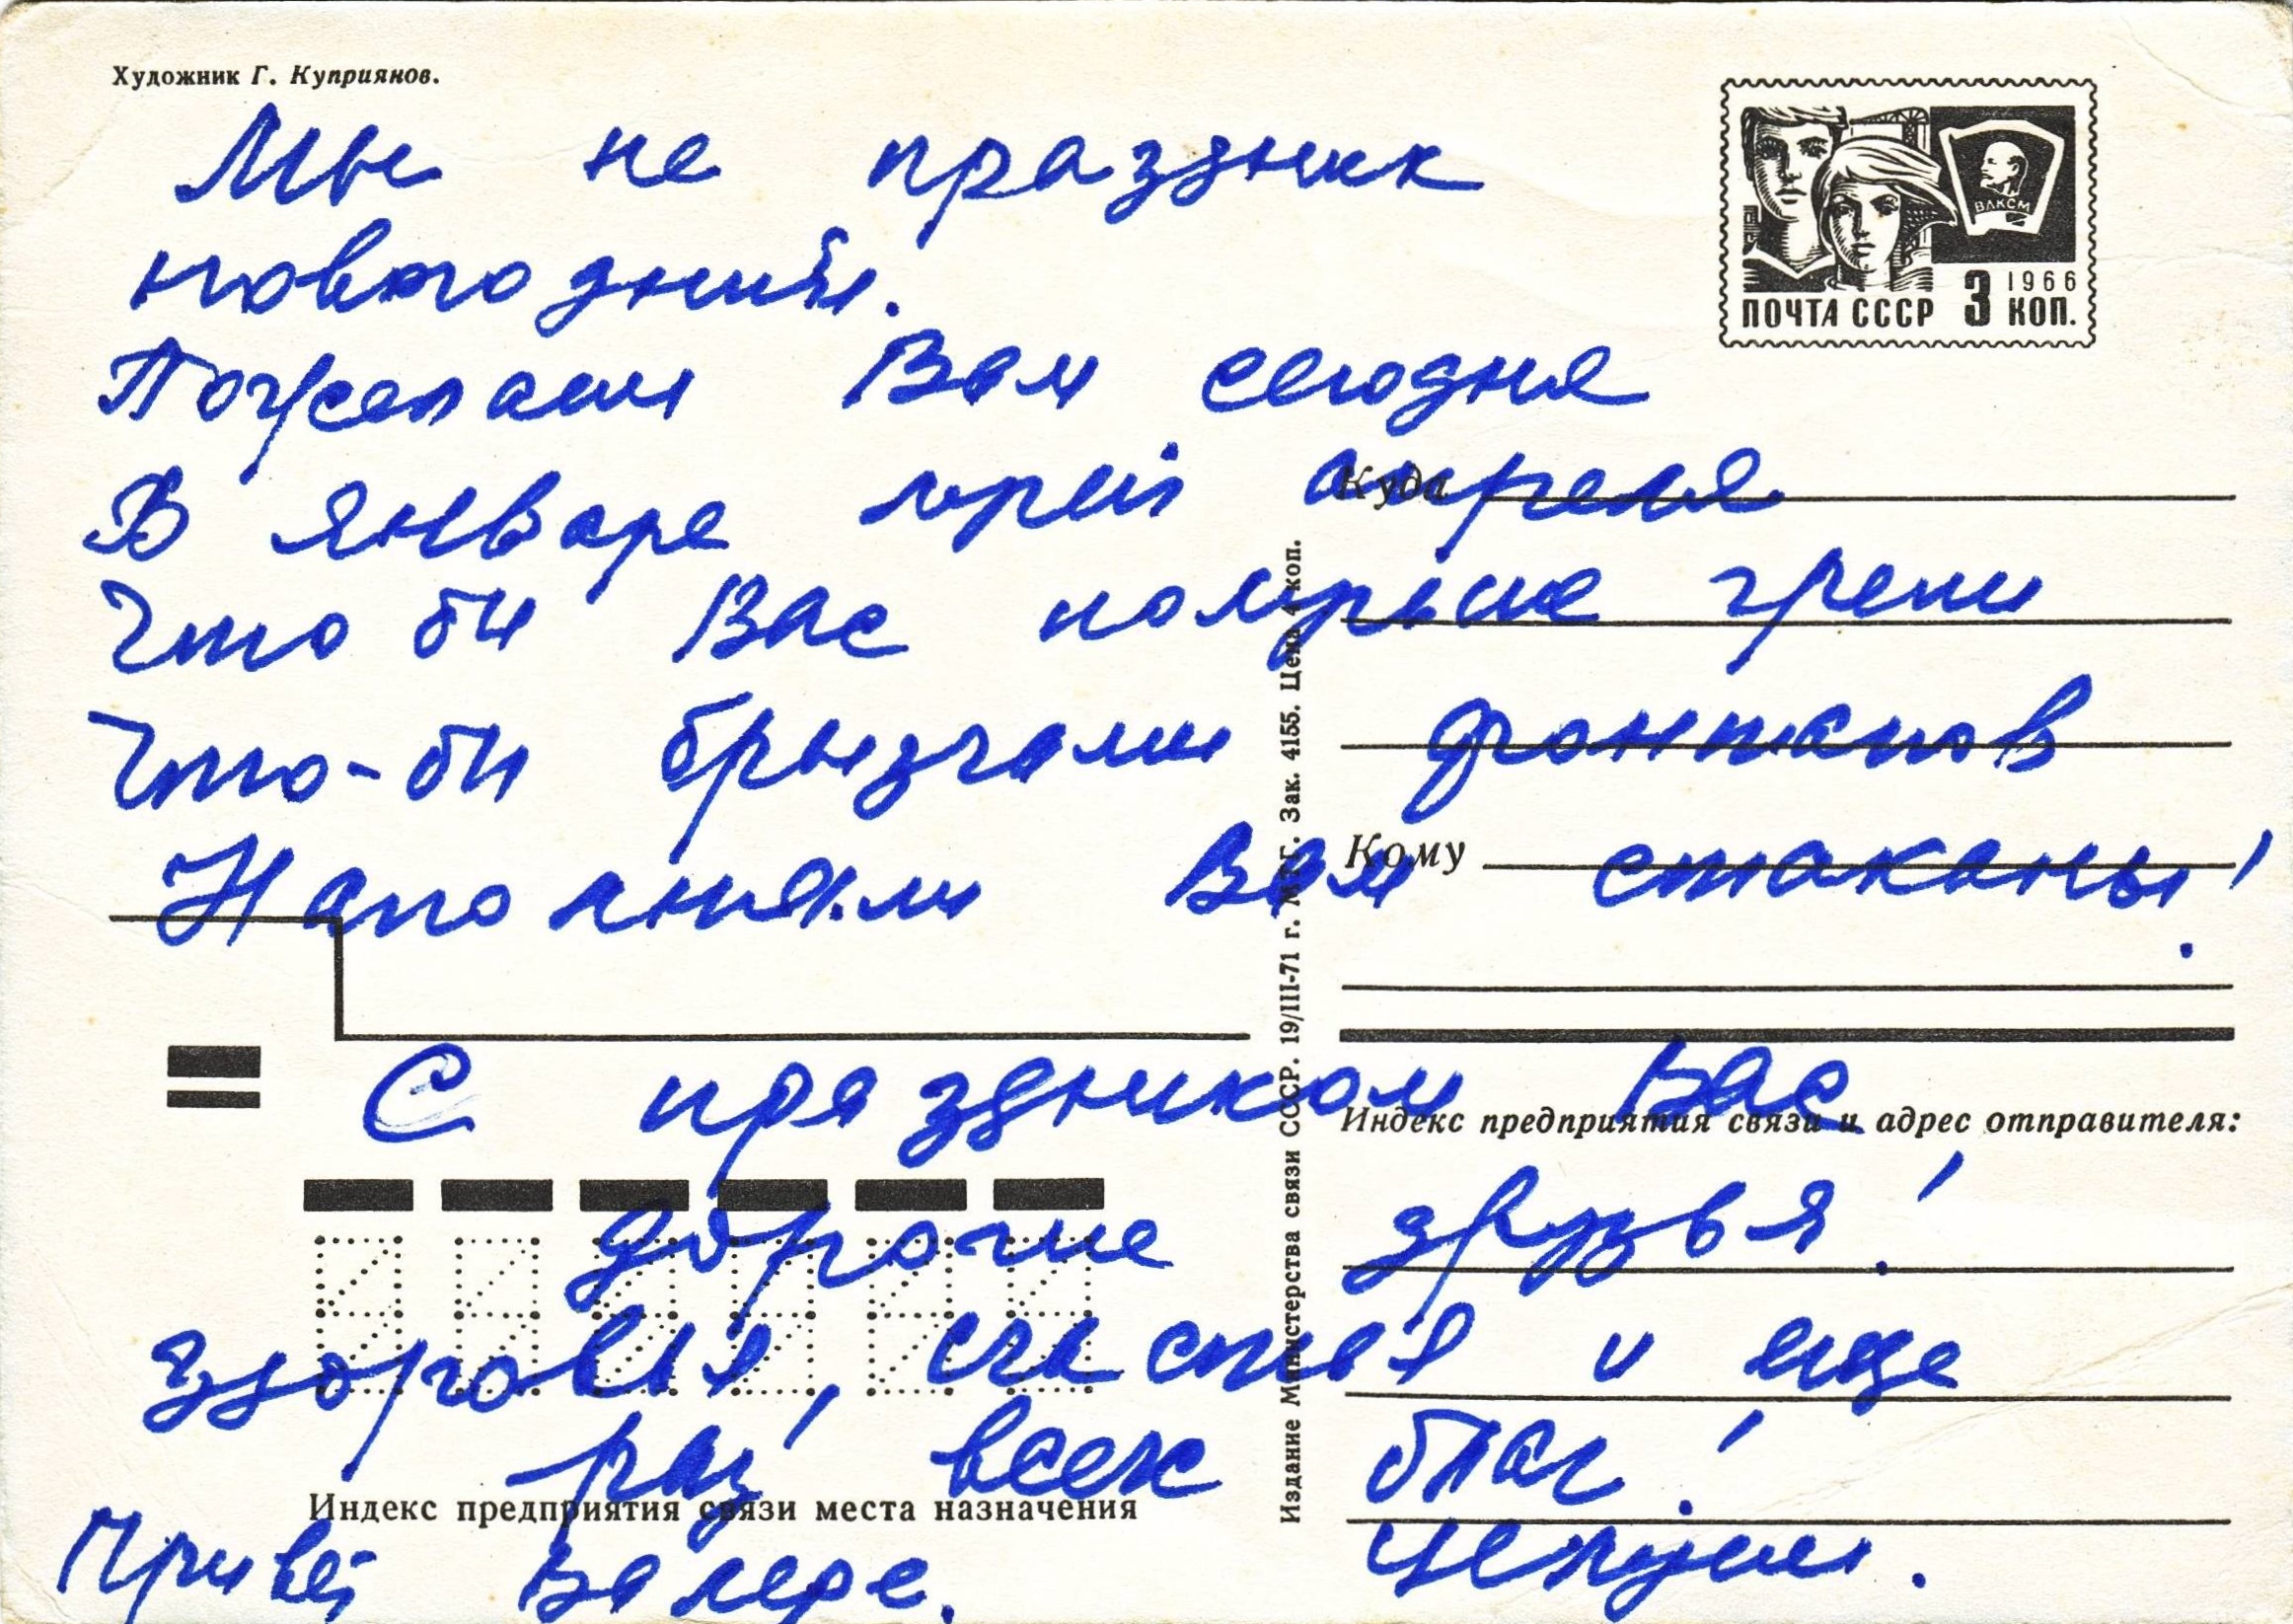 Художник Г. Куприянов.
ВЛКСМ
1966
ПОЧТА СССР 3 КОП.
Мы не праздник
новогодний.
Пожелаем Вам сегодня
В январе апреля
Что бы Вас грели
Что-бы брызгами фонтанов
Наполняли Вам стаканы!
Куда
Кому
С праздником Вас,
дорогие друзья!
здоровья, счастья и еще
раз всех благ!
Привет Валере. Целуем.
Индекс предприятия связи и адрес отправителя:
Индекс предприятия связи места назначения
Издание Министерства связи СССР. 19/III-71 г. МТГ. Зак. 4155. Цена 4 коп.